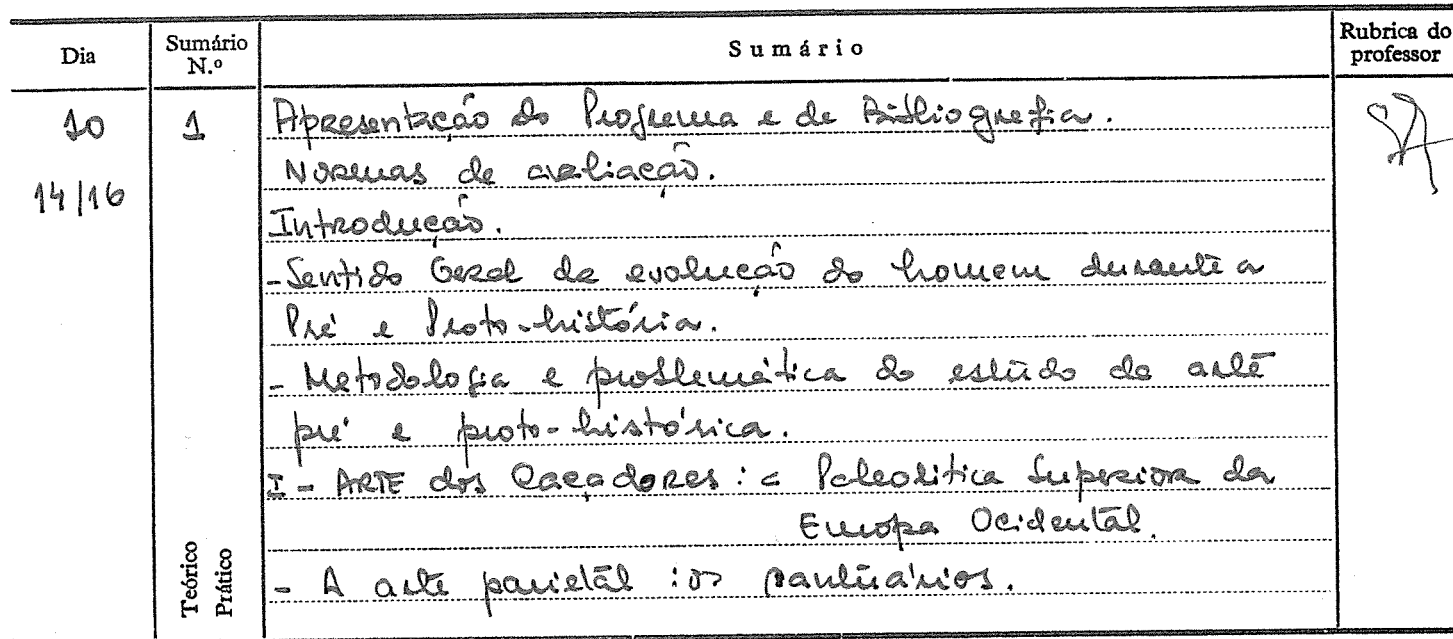 Dia Sumário N.º Sumário Rubrica do professor
10 1 Apresentação do Programa e de Bibliografia.
Normas de avaliação.
14/16
Introdução.
- Sentido Geral da evolução do homem durante a
Pré e Proto-história.
- Metodologia e problemática do estudo da arte
pré e proto-histórica.
I - ARTE dos Caçadores: a Paleolitica Superior da
Europa Ocidental.
Teórico Prático
- A arte parietal: os santuários.